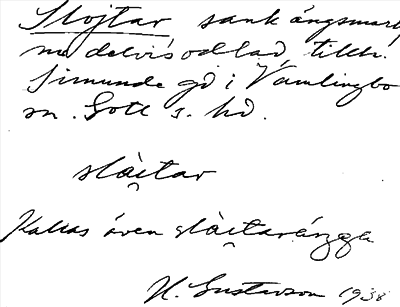 Slojtar sank ängsmark
nu delvis odlad, tillh.
Simunde gd i Vamlingbo
sn. Gotl s. hd.
slȧi̯tar
Kallas även slȧi̯taráŋga
H. Gustavson 1938